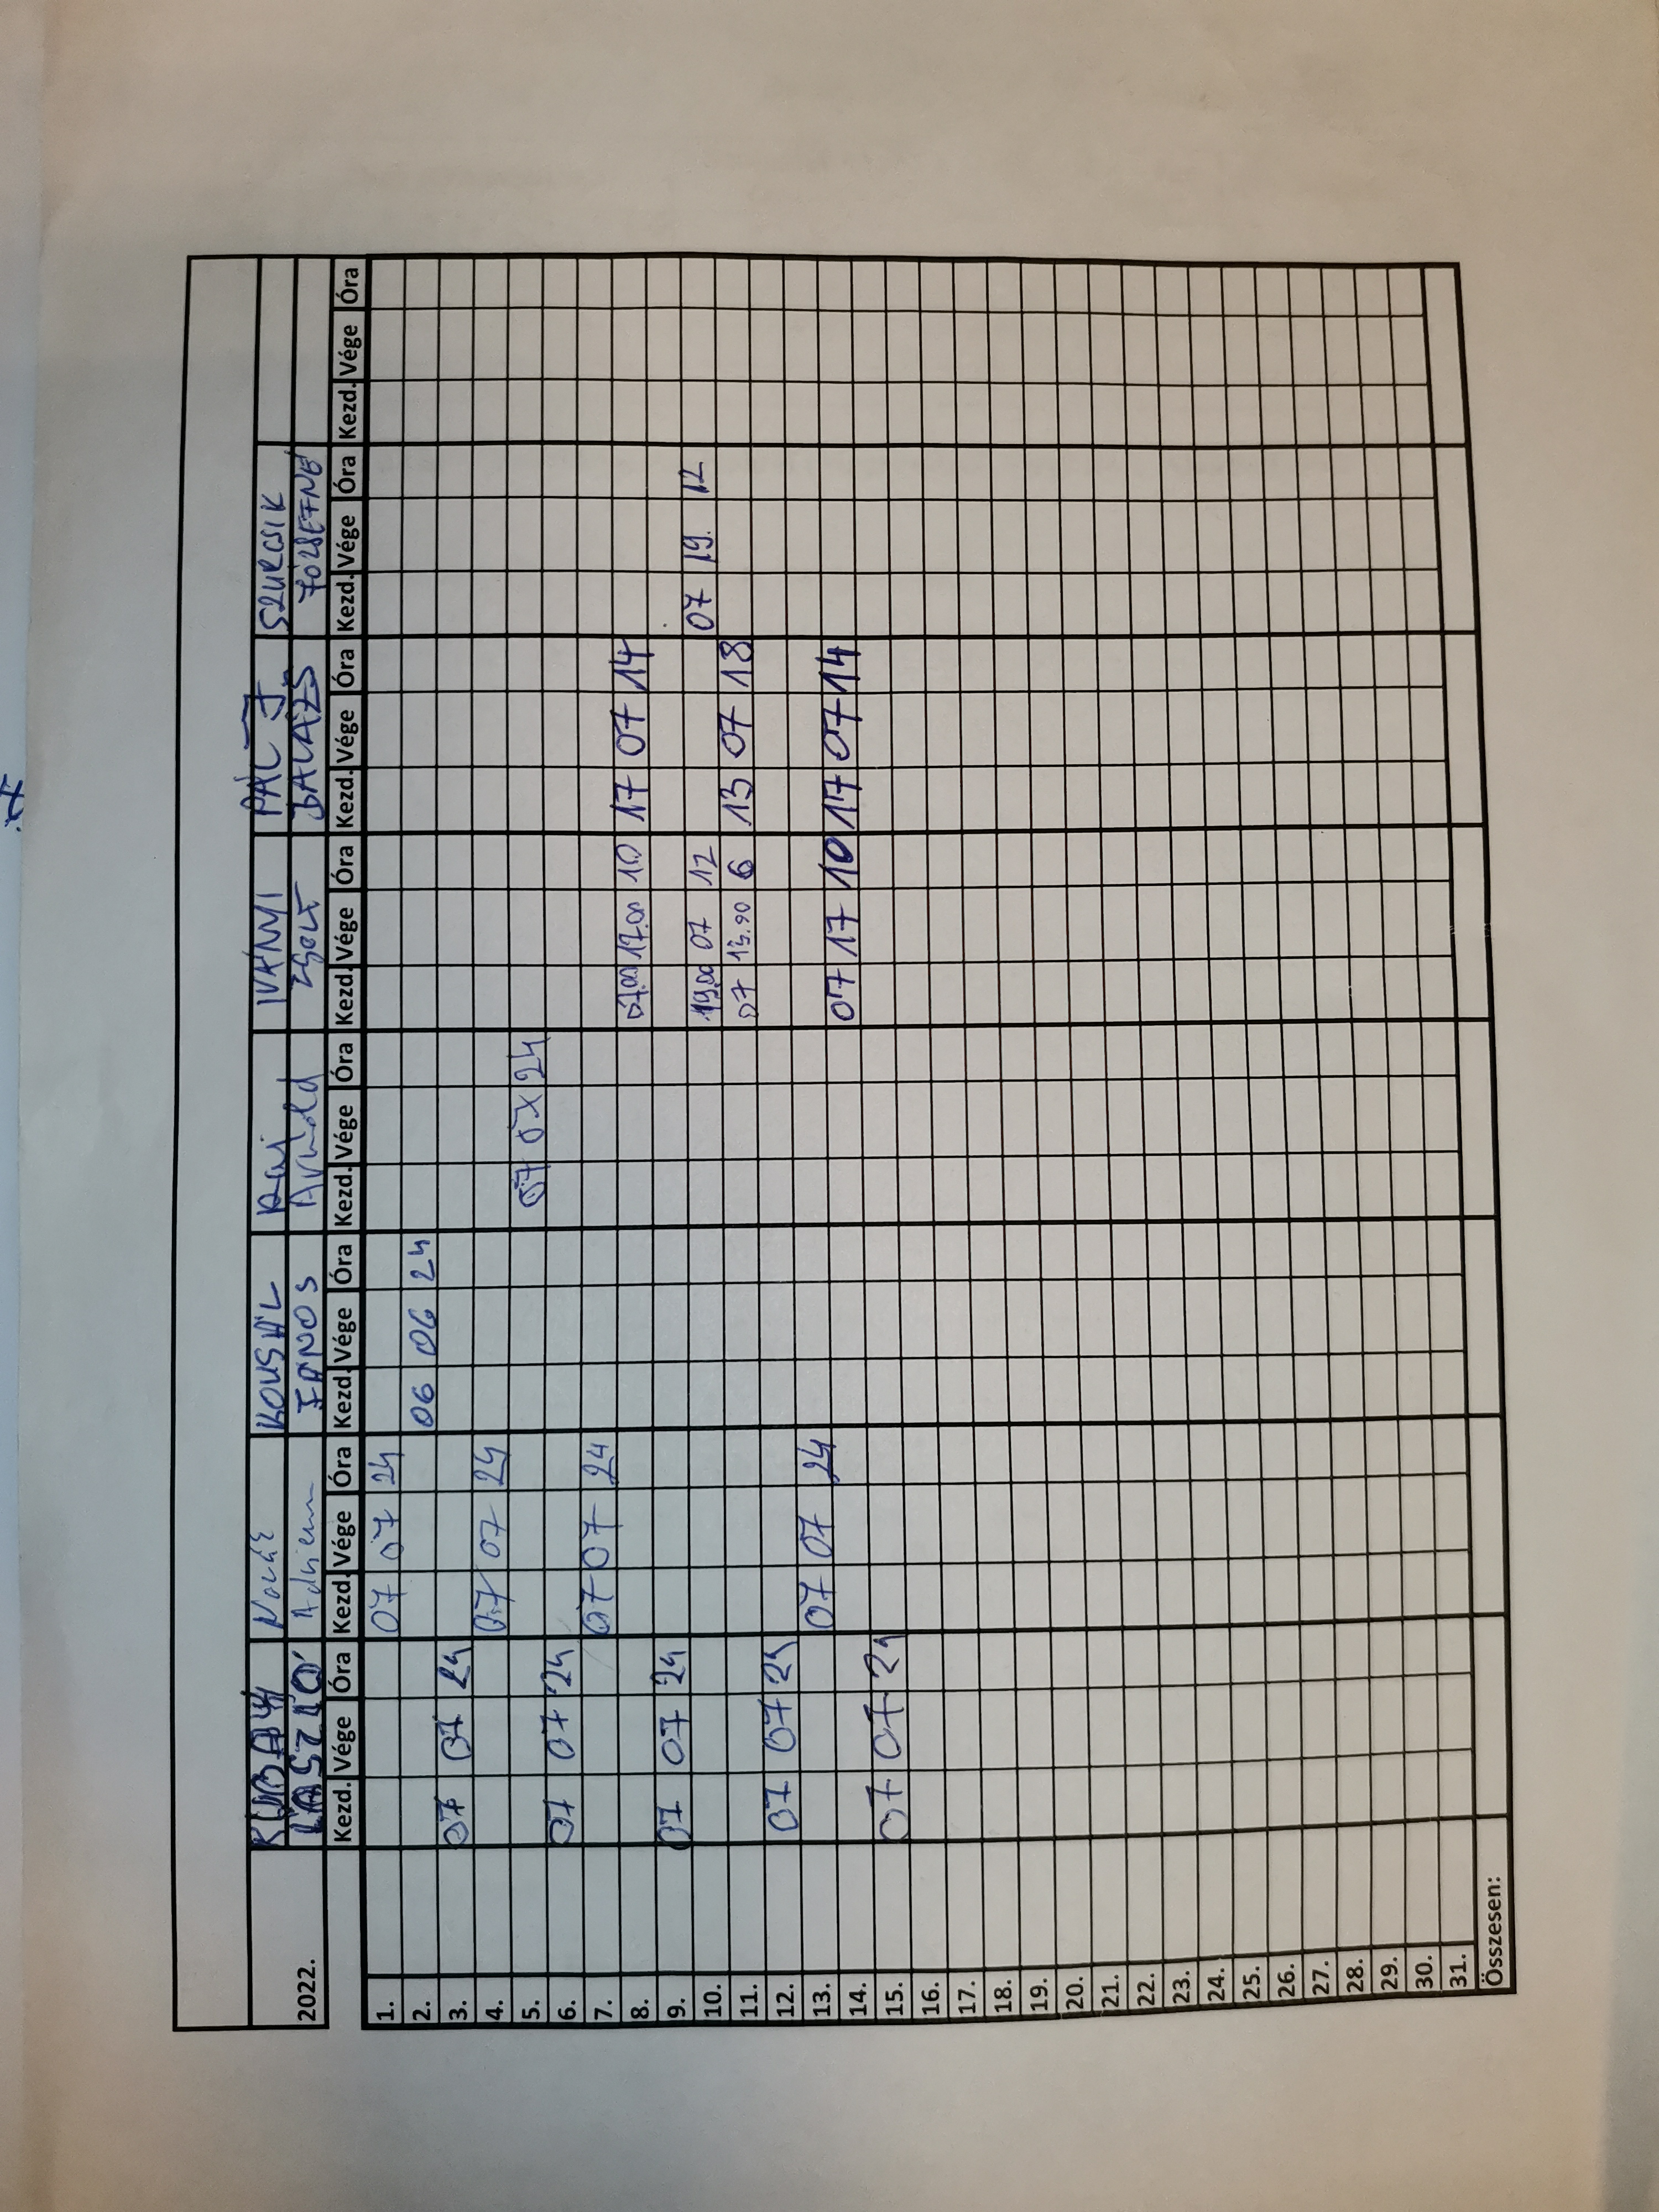 KOUSÁL IVÁNYI PÁL J. SZURCSIK
2022. LÁSZLÓ JÁNOS Arnold ZSOLT BALÁZS JÓZSEFNÉ
Kezd. Vége Óra Kezd. Vége Óra Kezd. Vége Óra Kezd. Vége Óra Kezd. Vége Óra Kezd. Vége Óra Kezd. Vége Óra Kezd. Vége Óra
1. 07 07 24
2. 06 06 24
3. 07 07 24
4. 07 07 24
5. 07 07 24
6. 07 07 24
7. 07 07 24
8. 07.00 17.00 10 17 07 14
9. 07 07 24
10. 19.00 07 12 07 19. 12
11. 07 13.00 6 13 07 18
12. 07 07 24
13. 07 07 24
14. 07 17 10 17 07 14
15. 07 07 24
16.
17.
18.
19.
20.
21.
22.
23.
24.
25.
26.
27.
28.
29.
30.
31.
Összesen: